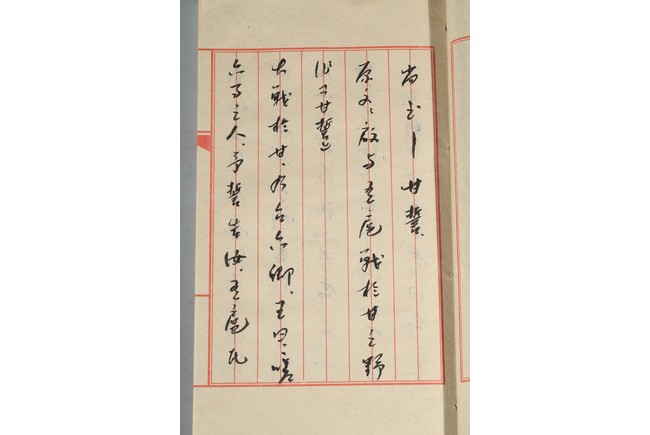 尚书｜甘誓
原文：啟与有扈战於甘之野
作《甘誓》
大战於甘，乃召六卿，王曰：嗟
六事之人，予誓告汝，有扈氏